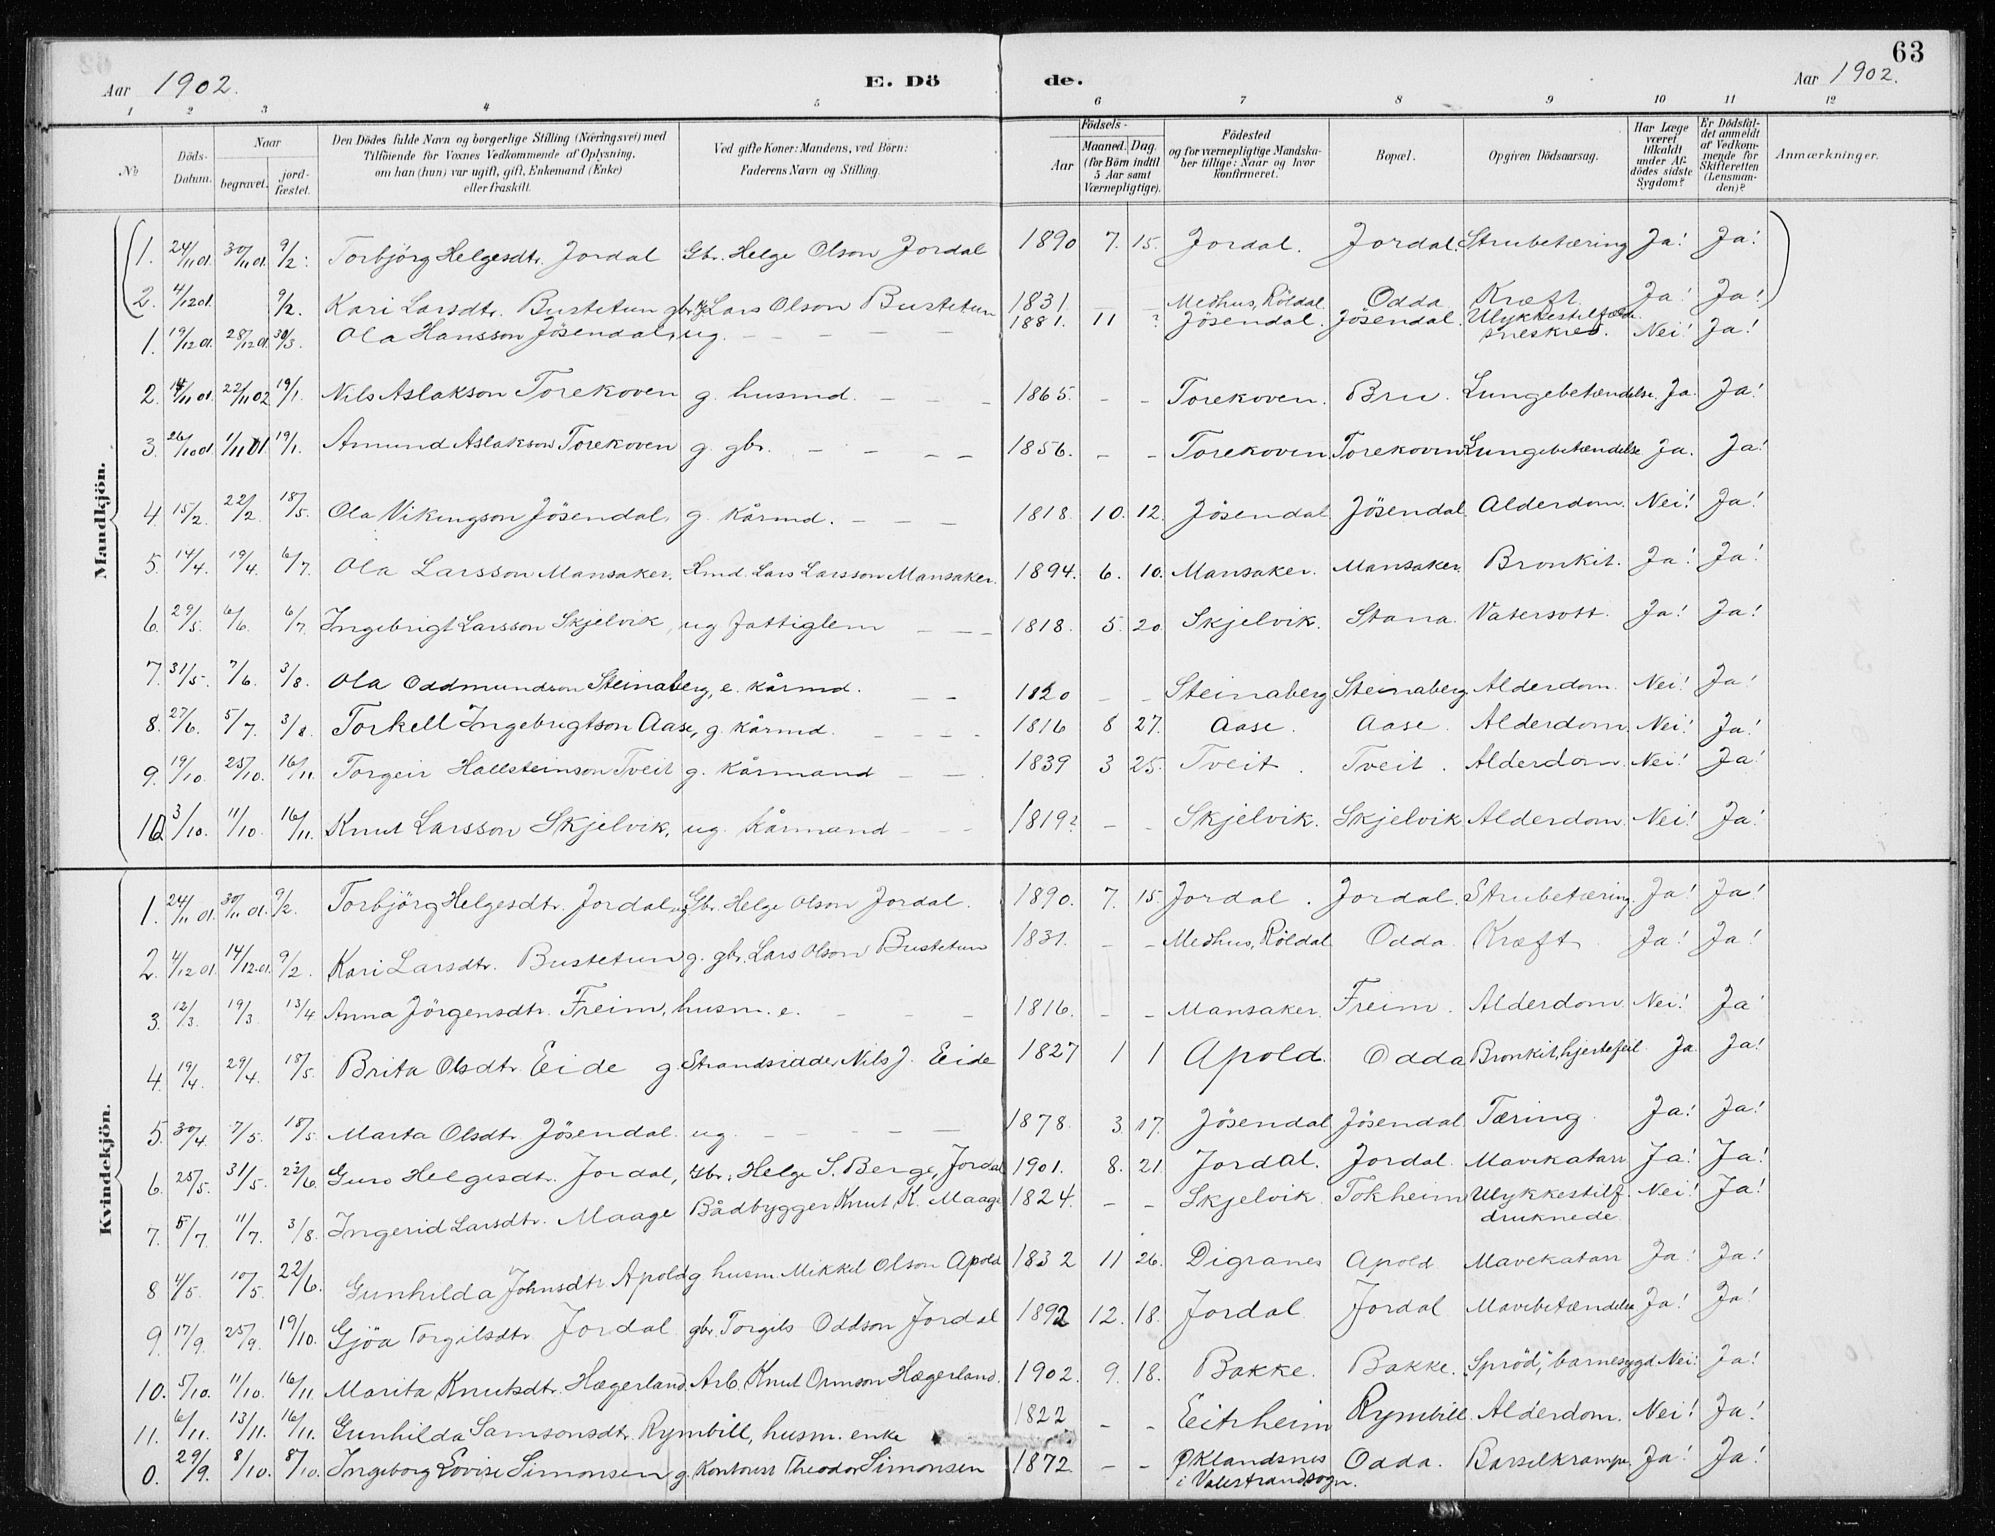 63
Aar 1902. E. Dö de. Aar 1902.
1 2 3 4 5 6 7 8 9 10 11 12
No Döds-Datum. Naar begravet. jord-fæstet. Den Dödes fulde Navn og borgerlige Stilling (Næringsvei) med Tilföiende for Voxnes Vedkommende af Oplysning, om han (hun) var ugift, gift, Enkemand (Enke) eller fraskilt. Ved gifte Koner: Mandens, ved Börn: Faderens Navn og Stilling. Födsels- Aar Maaned. Dag. (for Börn indtil 5 Aar samt Værnepligtige). Födested og for værnepligtige Mandskaber tillige: Naar og hvor konfirmeret. Bopæl. Opgiven Dödsaarsag. Har Læge været tilkaldt under Afdödes sidste Sygdom? Er Dödsfaldet anmeldt af Vedkommende for Skifteretten (Lensmanden)? Anmærkninger.
Mandkjön.
1. 24/11 01. 30/11 01. 9/2. Torbjörg Helgesdtr. Jordal Gbr. Helge Olson Jordal 1890 7. 15. Jordal. Jordal. Strubetæring Ja! Ja!
2. 4/12 01. 9/2. Kari Larsdtr. Bustetun gbr. Lars Olson Bustetun 1831. – – Medhus, Röldal Odda Kræft Ja! Ja!
1. 19/12 01. 28/12 01. 30/3. Ola Hansson Jösendal, ug. – – – 1881. 11 ? Jösendal. Jösendal. Ulykkestilfæld. sneskred. Nei! Ja!
2. 22/11 02 19/1. Nils Aslakson Torekoven g. husmd. – – – 1865. – – Torekoven. Bru. Lungebetændelse. Ja. Ja!
3. 26/10 01 1/11 01. 19/1. Amund Aslakson Torekoven g. gbr. – – – – 1856. – – Torekoven Torekoven Lungebetændelse Ja. Ja!
4. 15/2. 22/2. 18/5. Ola Vikingson Jösendal, g. Kårmd. – – – 1818. 10. 12. Jösendal Jösendal. Alderdom. Nei! Ja!
5. 14/4. 19/4. 6/7. Ola Larsson Mansaker. Hmd. Lars Larsson Mansaker. 1894. 6. 10. Mansaker. Mansaker. Bronkit. Ja! Ja!
6. 29/5. 6/6. 6/7. Ingebrigt Larsson Skjelvik, ug fattiglem – – – 1818. 5. 20. Skjelvik. Stana. Vatersott. Ja! Ja!
7. 31/5. 7/6. 3/8. Ola Oddmundson Steinaberg, e. kårmd. – – 1820 – – Steinaberg Steinaberg Alderdom. Nei! Ja!
8. 27/6. 5/7. 3/8. Torkell Ingebrigtson Aase, g. kårmd. – – – – 1816 8 27. Aase. Aase. Alderdom. Nei! Ja!
9. 19/10. 25/10. 16/11. Torgeir Hallsteinson Tveit g. Kårmand – – 1839 3 25. Tveit. Tveit. Alderdom. Nei! Ja!
10. 3/10. 11/10. 16/11. Knut Larsson Skjelvik, ug. Kårmand – – – 1819? – – Skjelvik. Skjelvik Alderdom. Nei! Ja!
Kvindekjön.
1. 24/11 01. 30/11 01. 9/2. Torbjörg Helgesdtr. Jordal, Gbr. Helge Olson Jordal. 1890. 7. 15. Jordal. Jordal. Strubetæring. Ja! Ja!
2. 4/12 01 14/12 01. 9/2. Kari Larsdtr. Bustetun g. gbr. Lars Olson Bustetun 1831. – – Medhus, Röldal Odda Kræft Ja! Ja!
3. 12/3. 19/3 13/4 Anna Jörgensdtr. Freim, husm. e. – – – 1816. – – Mansaker. Freim. Alderdom Nei! Ja!
4. 19/4. 29/4. 18/5. Brita Olsdtr. Eide g. Strandsidder Nils J. Eide 1827 1 1 Apold. Odda Bronkit, hjertefeil. Ja Ja!
5. 30/4. 7/5. 18/5 Marta Olsdtr. Jösendal. ug. – – – – 1878. 3. 17. Jösendal Jösendal Tæring. Ja! Ja!
6. 25/5. 31/5. 22/6. Guro Helgesdtr. Jordal, Gbr. Helge S. Berge, Jordal 1901. 8. 21 Jordal. Jordal. Mavekatarr Ja! Ja!
7. 5/7. 11/7. 3/8. Ingerid Larsdtr. Maage Bådbygger Knut K. Maage 1824. – – Skjelvik Tokheim Ulykkestilf. druknede. Nei! Ja!
8 4/5. 10/5. 22/6. Gunhilda Johnsdtr Apold g husm. Mikkel Olson Apold 1832 11 26. Digranes Apold Mavekatarr Ja! Ja!
9. 17/9. 25/9. 19/10. Gjöa Torgilsdtr. Jordal gbr. Torgils Oddson Jordal 1892 12. 18. Jordal Jordal Mavebetændelse Ja! Ja!
10. 5/10. 11/10. 16/11. Marita Knutsdtr. Hægerland. Arb. Knut Ormson Hægerland. 1902. 9. 18. Bakke. Bakke. "Spröd", barnesygd Nei! Ja!
11. 6/11. 13/11. 16/11. Gunhilda Samsonsdtr. Rymbill, husm. enke 1822 – – Eitrheim Rymbill. Alderdom. Nei! Ja!
0. 29/9. 8/10. 8/10. Ingeborg Lovise Simonsen g. Kontorist Theodor Simonsen 1872. – – Öklandsnes i Valestrandsogn. Odda. Barselkrampe. Ja! Ja!